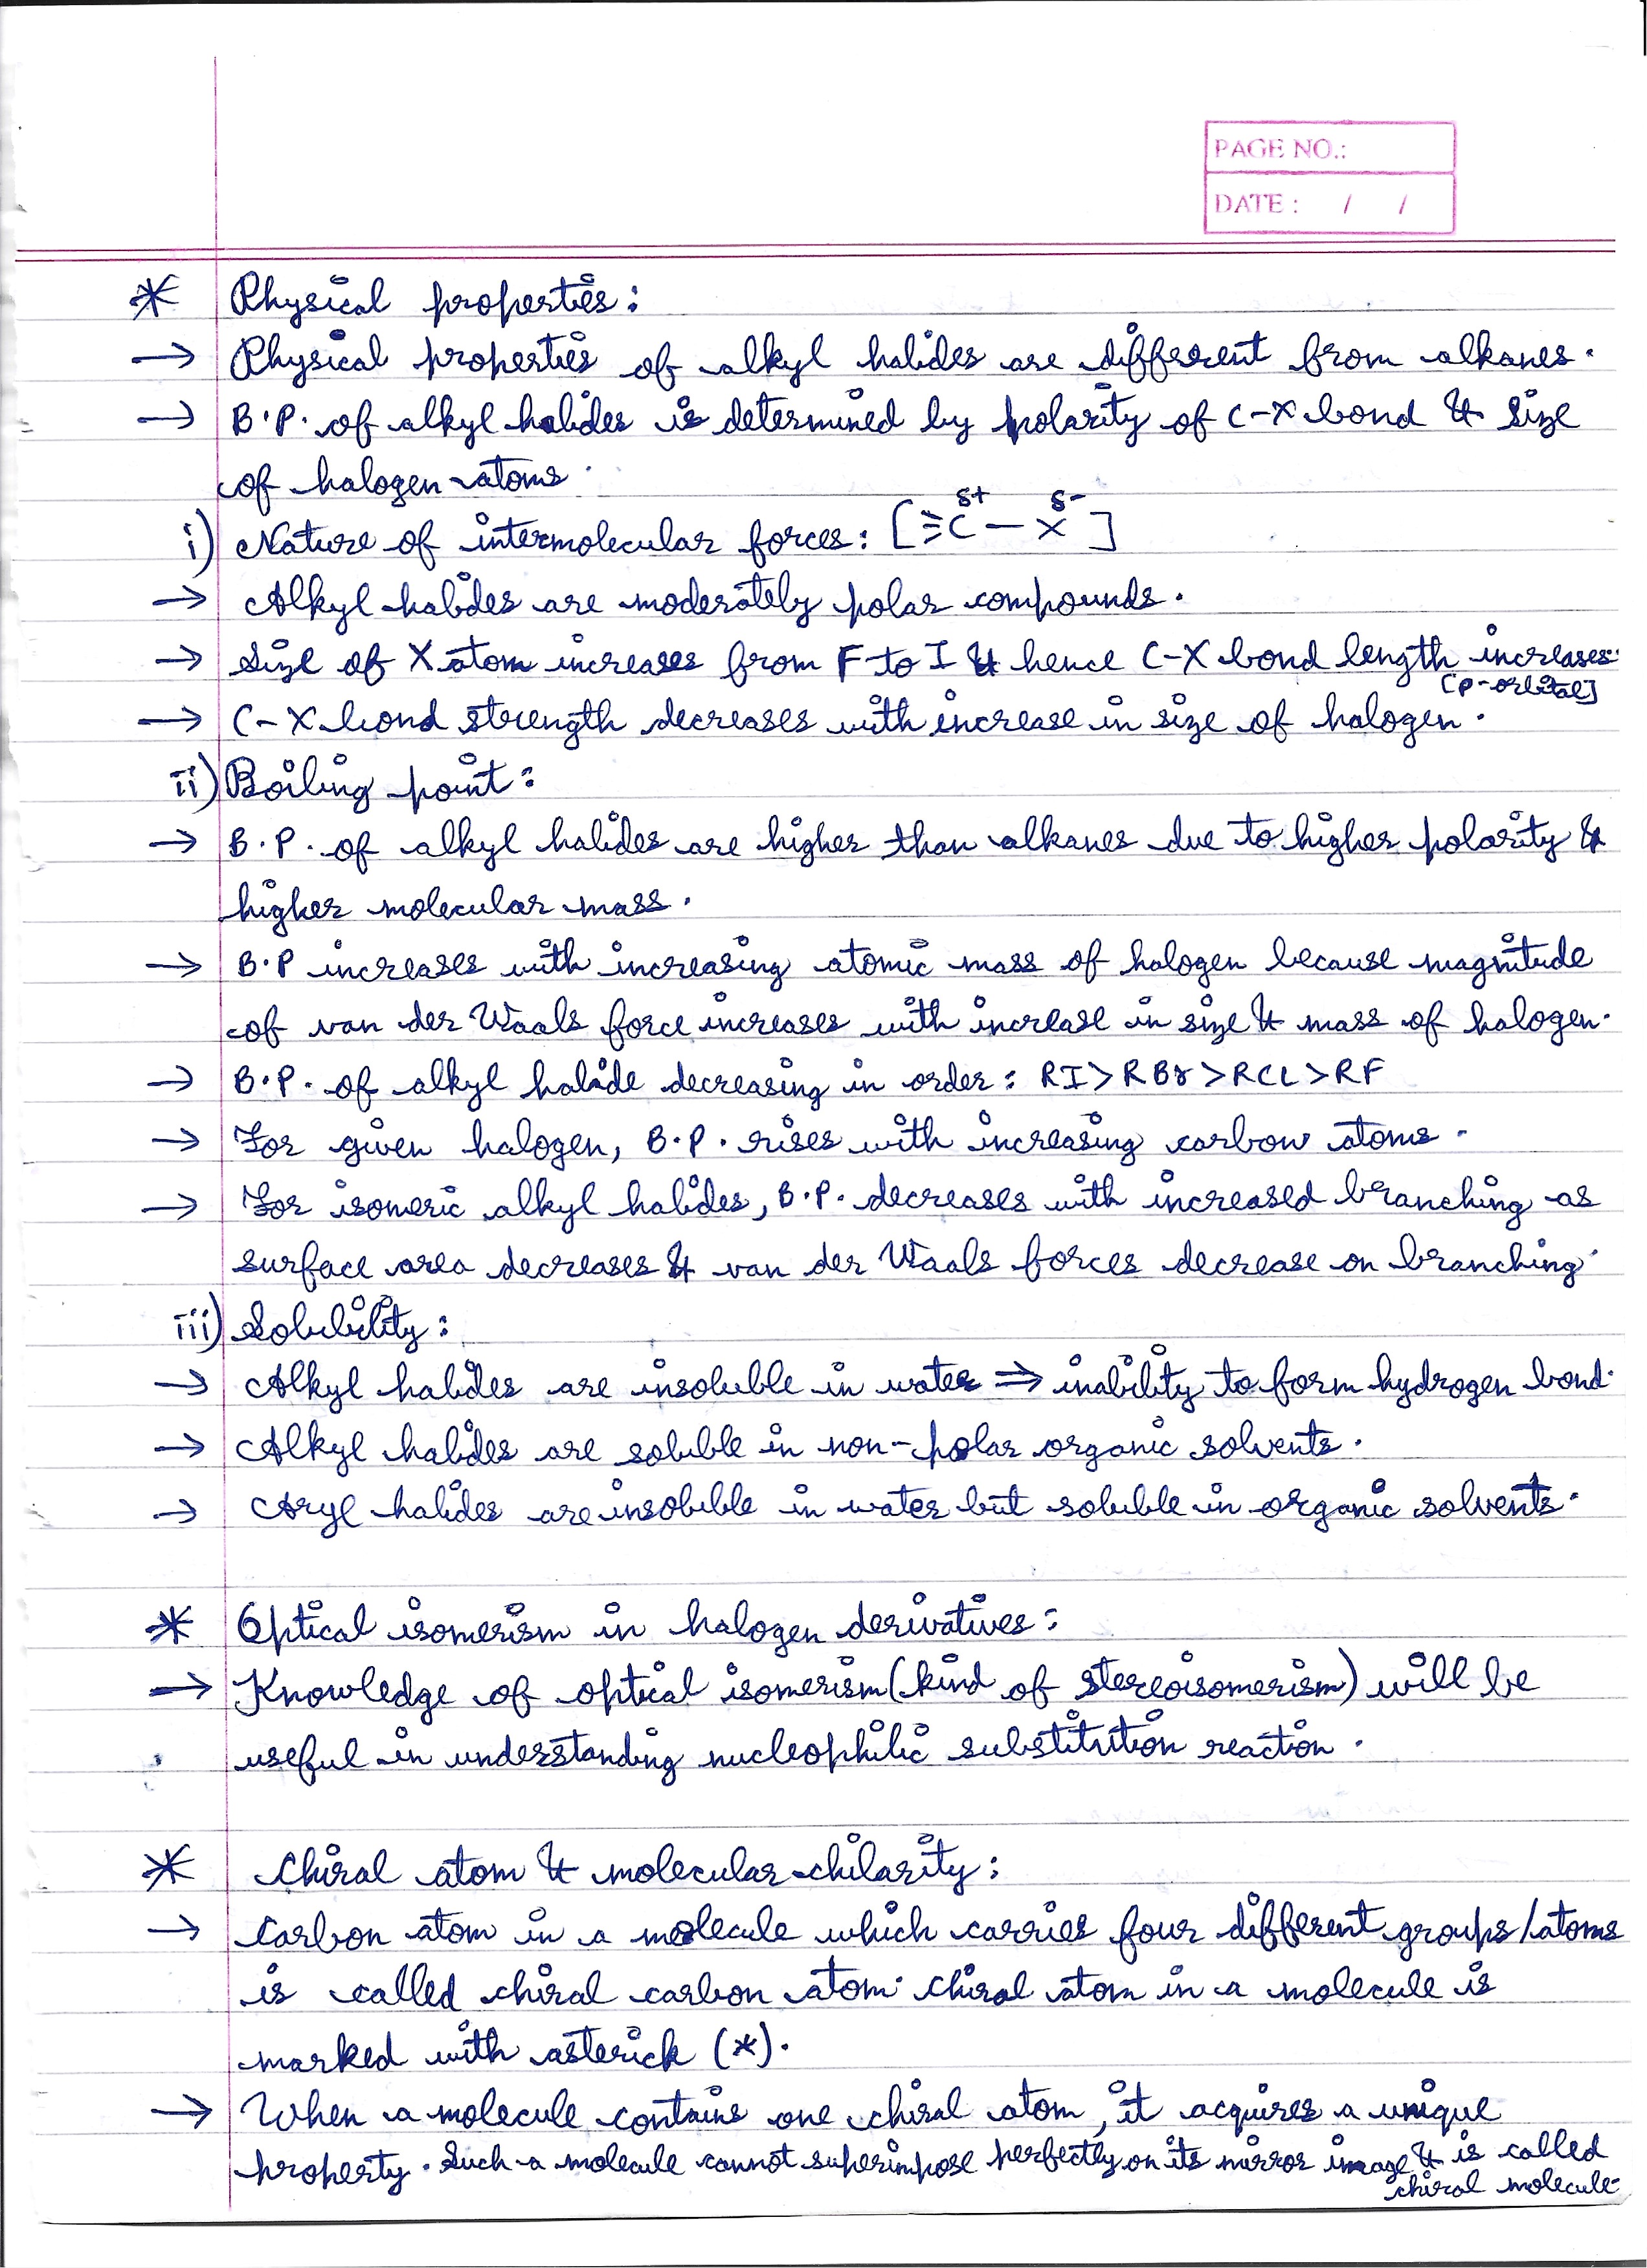 PAGE NO.:
DATE : / /
* Physical properties:
→ Physical properties of alkyl halides are different from alkanes.
→ B.P. of alkyl halides is determined by polarity of C-X bond & size
of halogen atoms.
i) Nature of intermolecular forces: [≡C^δ+ — X^δ-]
→ Alkyl halides are moderately polar compounds.
→ Size of X atom increases from F to I & hence C-X bond length increases.
[p-orbital]
→ C-X bond strength decreases with increase in size of halogen.
ii) Boiling point:
→ B.P. of alkyl halides are higher than alkanes due to higher polarity &
higher molecular mass.
→ B.P increases with increasing atomic mass of halogen because magnitude
of van der Waals force increases with increase in size & mass of halogen.
→ B.P. of alkyl halide decreasing in order: RI > RBr > RCL > RF
→ For given halogen, B.P. rises with increasing carbon atoms.
→ For isomeric alkyl halides, B.P. decreases with increased branching as
surface area decreases & van der Waals forces decrease on branching.
iii) Solubility:
→ Alkyl halides are insoluble in water ⇒ inability to form hydrogen bond.
→ Alkyl halides are soluble in non-polar organic solvents.
→ Aryl halides are insoluble in water but soluble in organic solvents.
* Optical isomerism in halogen derivatives:
→ Knowledge of optical isomerism (kind of stereoisomerism) will be
useful in understanding nucleophilic substitution reaction.
* Chiral atom & molecular chilarity:
→ Carbon atom in a molecule which carries four different groups/atoms
is called chiral carbon atom. Chiral atom in a molecule is
marked with asterick (*).
→ When a molecule contains one chiral atom, it acquires a unique
property. Such a molecule cannot superimpose perfectly on its mirror image & is called
chiral molecule.